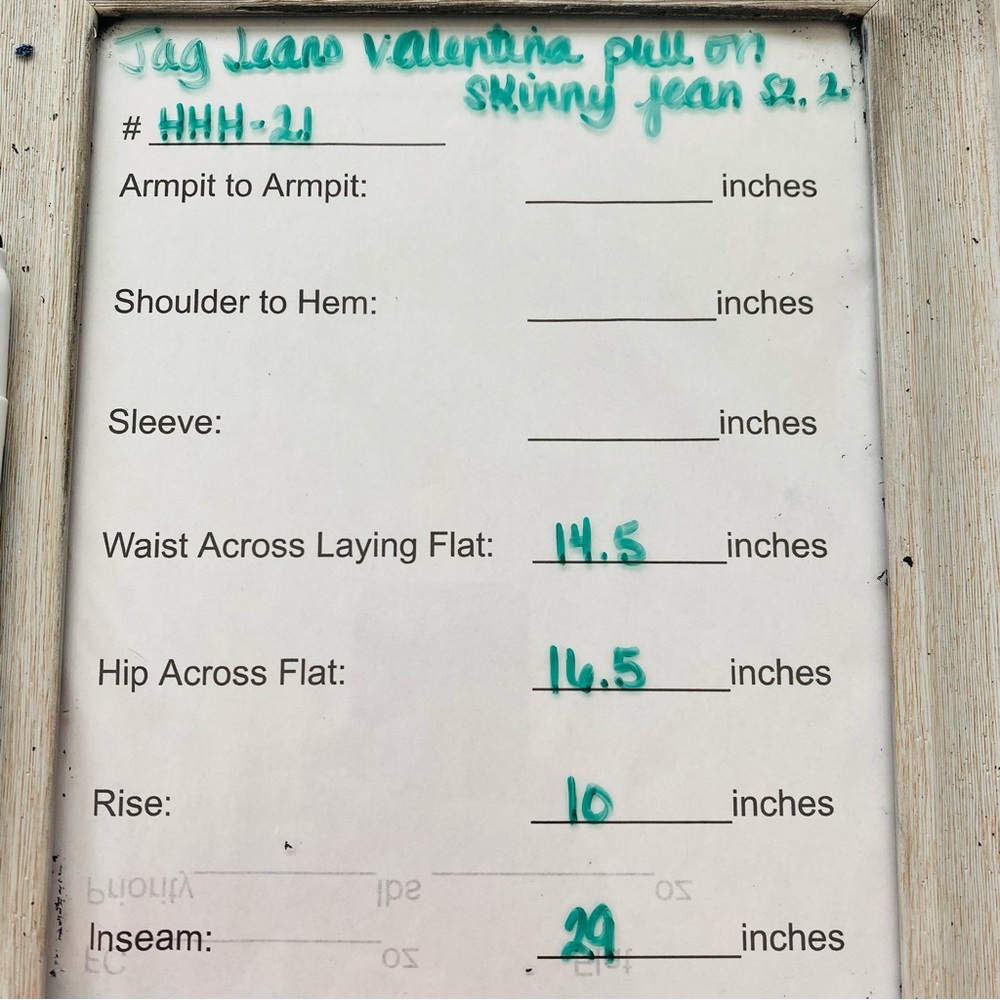 Jag Jeans Valentina pull on
skinny jean sz. 2.
# HHH-21
Armpit to Armpit: inches
Shoulder to Hem: inches
Sleeve: inches
Waist Across Laying Flat: 14.5 inches
Hip Across Flat: 16.5 inches
Rise: 10 inches
Priority lbs oz
Inseam: 29 inches
FC oz Flat